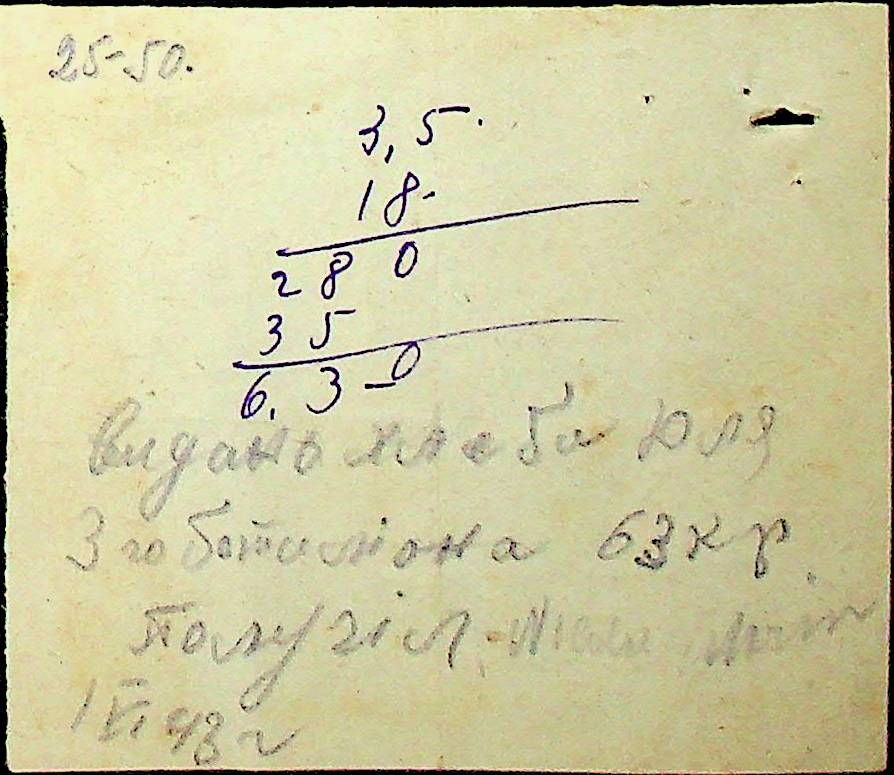 25-50.
3,5.
18.
280
35
6.3-0
Видано хлеба для
3гоботалиона 63 кр
Получiл
1 VI 43 г